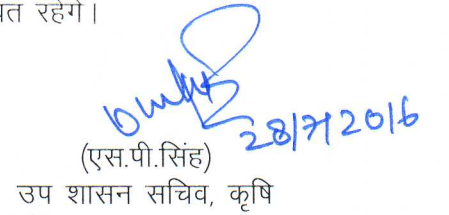 रहेगे।
28/7/2016
(एस.पी.सिंह)
उप शासन सचिव, कृषि